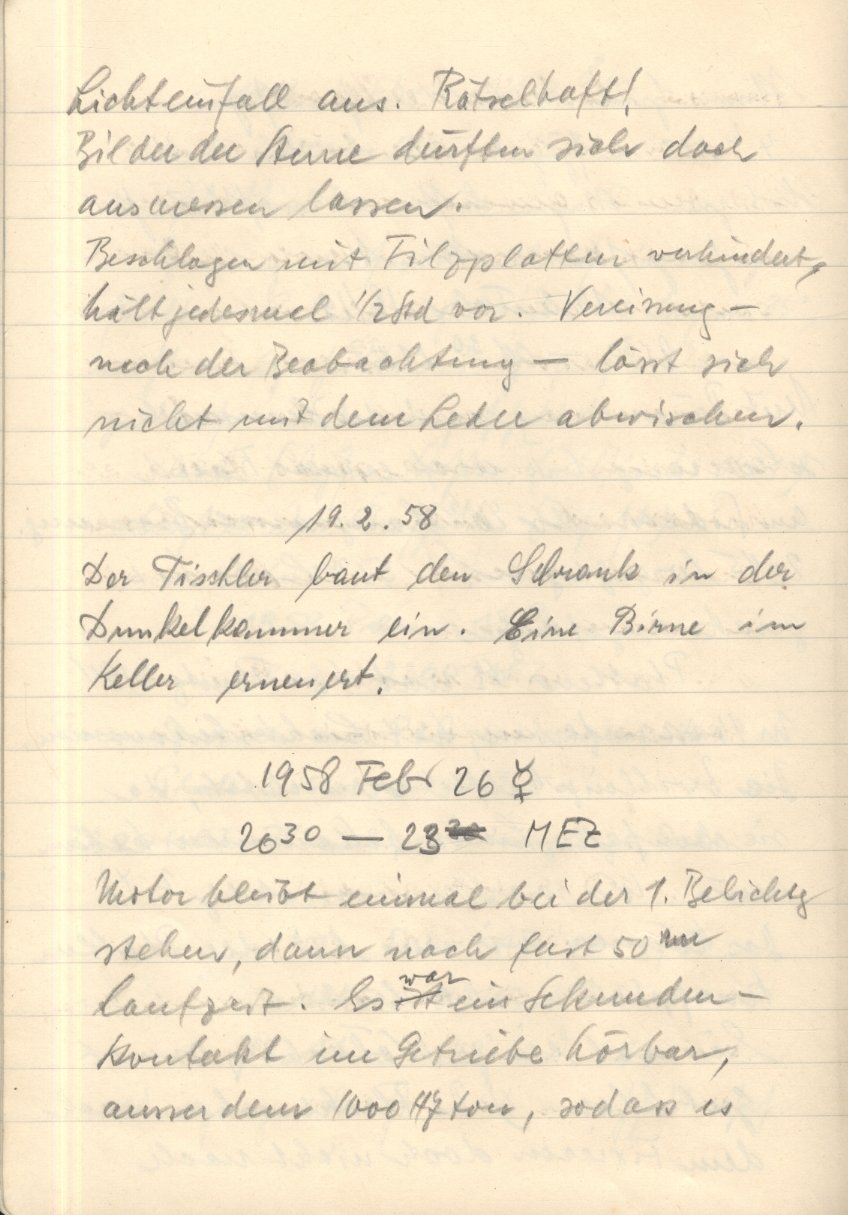 Lichteinfall aus. Rätselhaft!
Bilder der Sterne dürften sich doch
ausmessen lassen.
Beschlagen mit Filzplatten verhindert,
hält jedesmal 1/2 Std vor. Vereisung –
nach der Beobachtung – lässt sich
nicht mit dem Leder abwischen.
19. 2. 58
Der Tischler baut den Schrank in der
Dunkelkammer ein. Eine Birne im
Keller erneuert.
1958 Febr 26 ☿
20 30 — 23 MEZ
Motor bleibt einmal bei der 1. Belichtg
stehen, dann nach fast 50 m
Laufzeit. Es war ein Sekunden-
Kontakt im Getriebe hörbar,
ausserdem 1000 Hz ton, sodass es